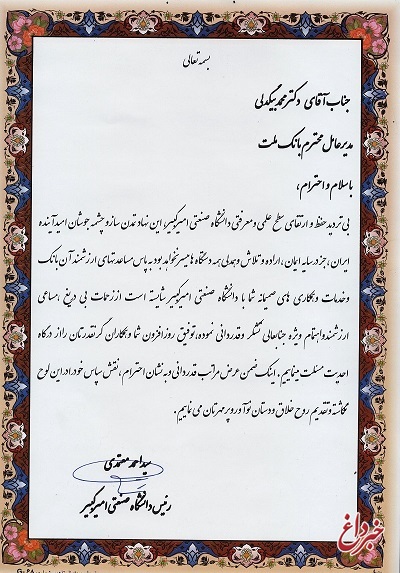 بسمه تعالی
جناب آقای دکتر محمد بیگدلی
مدیرعامل محترم بانک ملت
با سلام و احترام،
بی تردید حفظ و ارتقای سطح علمی و معرفتی دانشگاه صنعتی امیرکبیر، این نهاد تمدن ساز و چشمه جوشان امید آینده
ایران، جز در سایه ایمان، اراده و تلاش و همدلی همه دستگاه ها میسر نخواهد بود به پاس مساعدتهای ارزشمند آن بانک
و خدمات و همکاری های صمیمانه شما با دانشگاه صنعتی امیرکبیر شایسته است از زحمات بی دریغ، مساعی
ارزشمند و اهتمام ویژه جنابعالی تشکر و قدردانی نموده، توفیق روزافزون شما و همکاران گرانقدرتان را از درگاه
احدیت مسئلت مینماییم. اینک ضمن عرض مراتب قدردانی و به نشان احترام، نقش سپاس خود را در این لوح
نگاشته و تقدیم روح خلاق و دستان نوآور و پر مهرتان می نماییم.
سیداحمد معتمدی
رئیس دانشگاه صنعتی امیرکبیر
خبرداغ